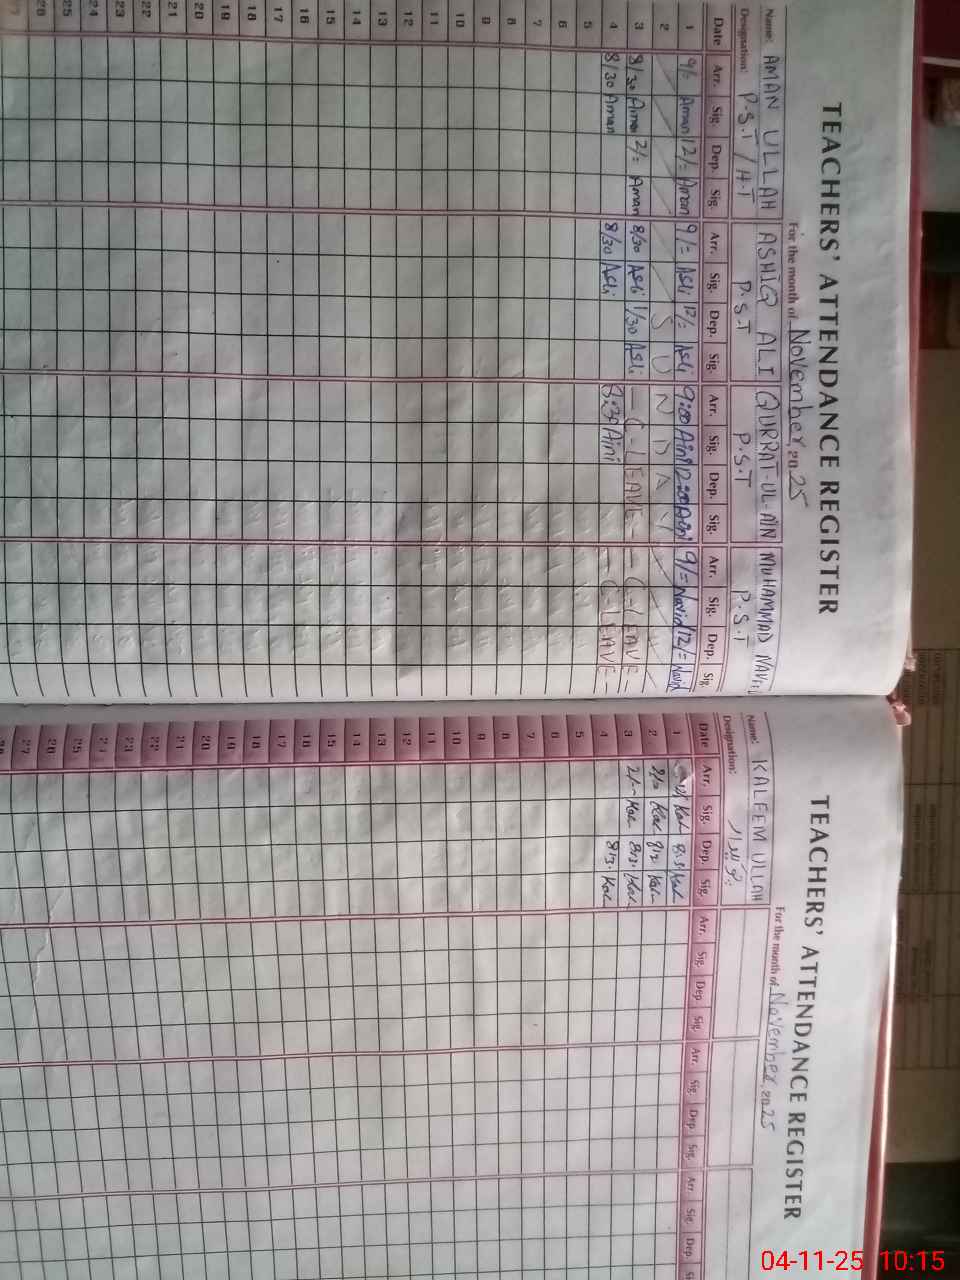 TEACHERS' ATTENDANCE REGISTER
For the month of November, 2025
Name: AMAN ULLAH ASHIQ ALI QURRAT-UL-AIN MUHAMMAD
Designation: P.S.T / H.T P.S.T P.S.T P.S.T
Date Arr. Sig. Dep. Sig. Arr. Sig. Dep. Sig. Arr. Sig. Dep. Sig. Arr. Sig. Dep. Sig.
1 9/= Aman 12/= Aman 9/= Asli 12/= Asli 9:00 Aini 12:00 Aini 9/= Navid 12/= Navid
2 S U N D A Y
3 8/30 Aman 2/= Aman 8/30 Asli 1/30 Asli — C-LEAVE — — C-LEAVE —
4 8/30 Aman 8/30 Asli 8:30 Aini — C-LEAVE —
5
6
7
8
9
10
11
12
13
14
15
16
17
18
19
20
21
22
23
24
25
26
27
TEACHERS' ATTENDANCE REGISTER
For the month of November, 2025
Name: KALEEM ULLAH
Designation: چوکیدار
Date Arr. Sig. Dep. Sig. Arr. Sig. Dep Sig. Arr. Sig. Dep Sig. Arr. Sig. Dep.
1 Kal Kal
2 Kal Kal
3 Kal Kal
4 Kal
5
6
7
8
9
10
11
12
13
14
15
16
17
18
19
20
21
22
23
24
25
26
27
28
04-11-25 10:15